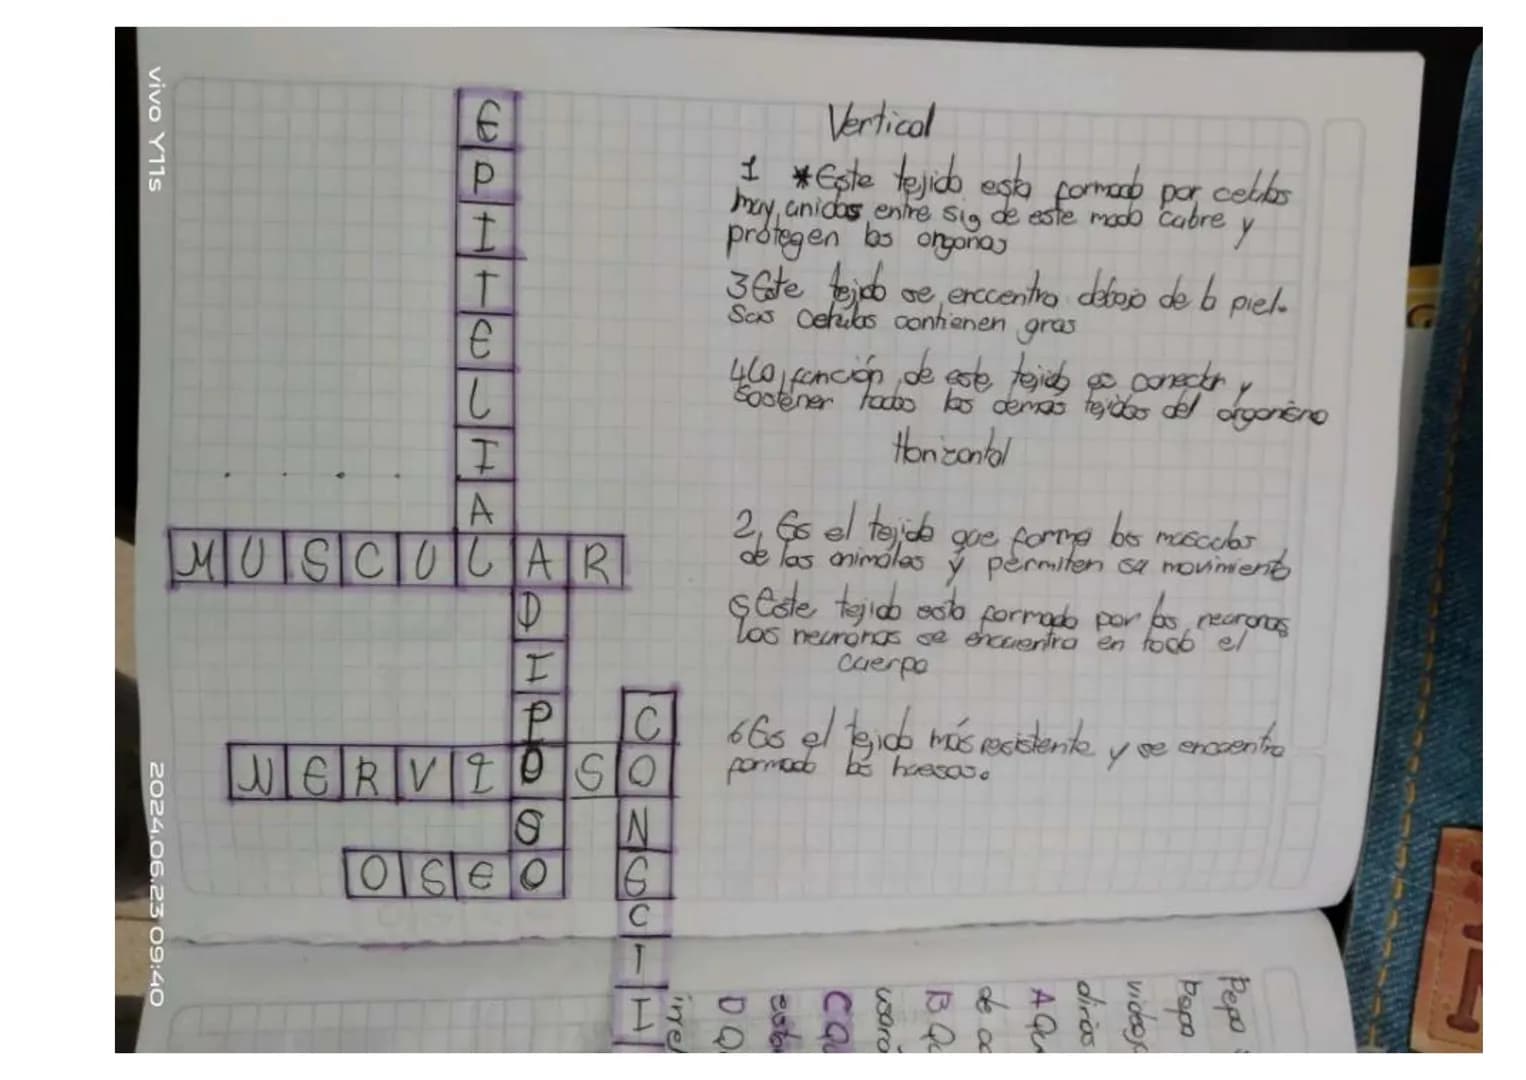 E
P
I
T
E
L
I
A
MUSCULAR
D
I
P
C
NERVIOSO
S
N
OSEO
E
C
I
I
Vertical
1 *Este tejido esta formado por celulas
muy unidas entre si, de este modo cubre y
protegen los organos
3 Este tejido se enccentra debajo de la piel.
Sus celulas contienen gras
4 La función de este tejido es conectar y
Sostener todos los demas tejidos del organismo
Horizontal
2, Es el tejido que forma los musculos
de los animales y permiten su movimiento
5 Este tejido esta formado por las neuronas
Las neuronas se encuentra en todo el
cuerpo
6 Es el tejido más resistente y se encuentra
formado los huesos.
Pepa
Pepa
videoj
dirias
A Qu
de ac
B Qu
usaro
C Qu
estab
D Q
irrel
vivo Y11s
2024.06.23 09:40